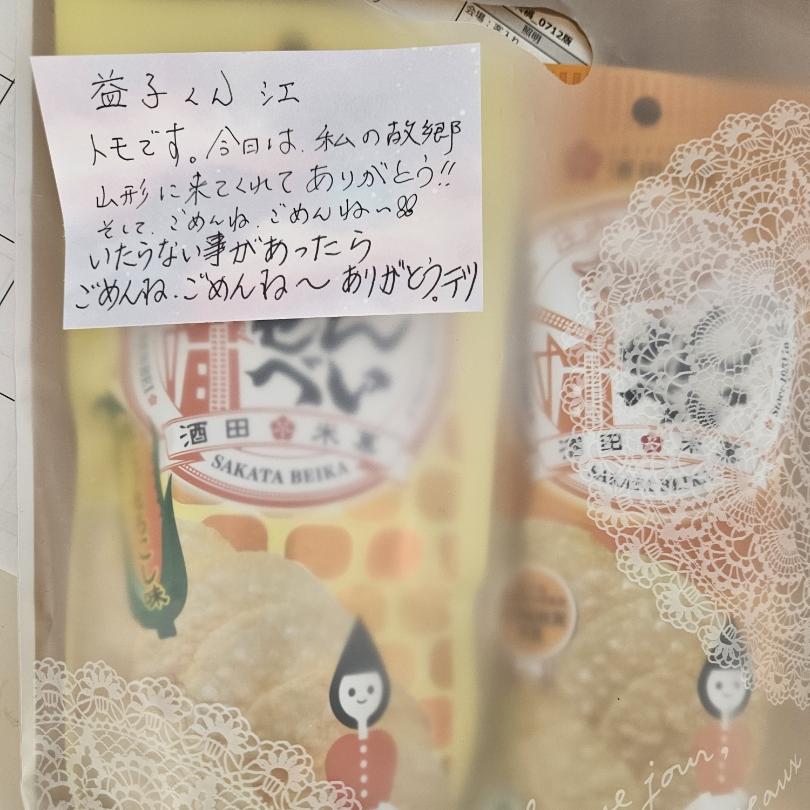 _0712版
照明
会場:
益子くん 江
トモです。今日は、私の故郷
山形に来てくれて ありがとう!!
そして、ごめんね、ごめんね〜
いたらない事があったら
ごめんね、ごめんね〜 ありがとう。デリ
せんべい
酒田米菓
SAKATA BEIKA
うもろこし味
酒田米菓
SAKATA BEIKA
jour,
eaux